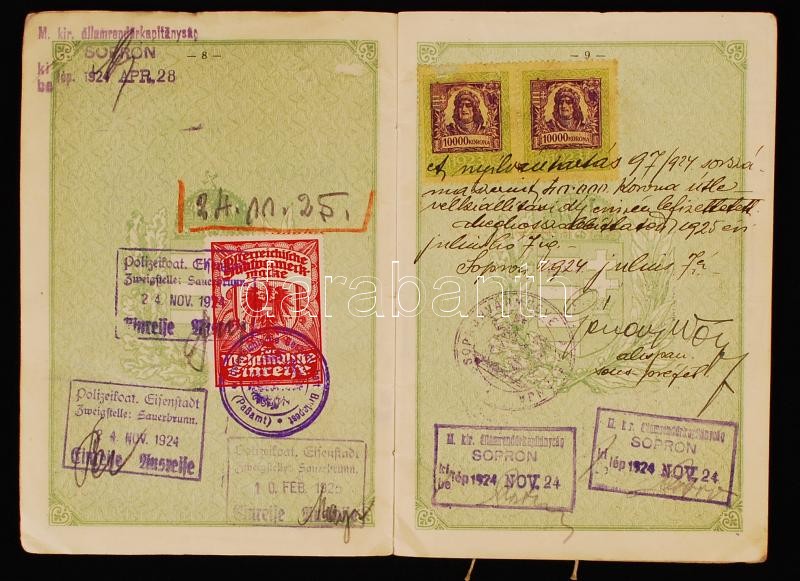 M. kir. államrendőrkapitányság
SOPRON
ki
lép. 1924 APR. 28
be
- 8 -
24. 11. 25.
Polizeikoat. Eisenstadt
Zweigstelle: Sauerbrunn.
24 NOV. 1924
Einreise
Österreichische
Einreise
(Paßamt)
Polizeikoat. Eisenstadt
Zweigstelle: Sauerbrunn.
4 NOV. 1924
Einreise Ausreise
Polizeikoat. Eisenstadt
Zweigstelle: Sauerbrunn.
10 FEB. 1925
Einreise
- 9 -
10000 KORONA 10000 KORONA
A nyilvántartás 97/924 sorszá-
ma szerint korona útle-
vélkiállítási díj címén lefizettetett.
Meghosszabbítatott 1925 évi
julius hó 7 ig.
Sopron 1924 julius
alispán
M. kir. államrendőrkapitányság
SOPRON
ki
lép 1924 NOV. 24
be
M. kir. államrendőrkapitányság
SOPRON
ki
lép 1924 NOV. 24
darabanth